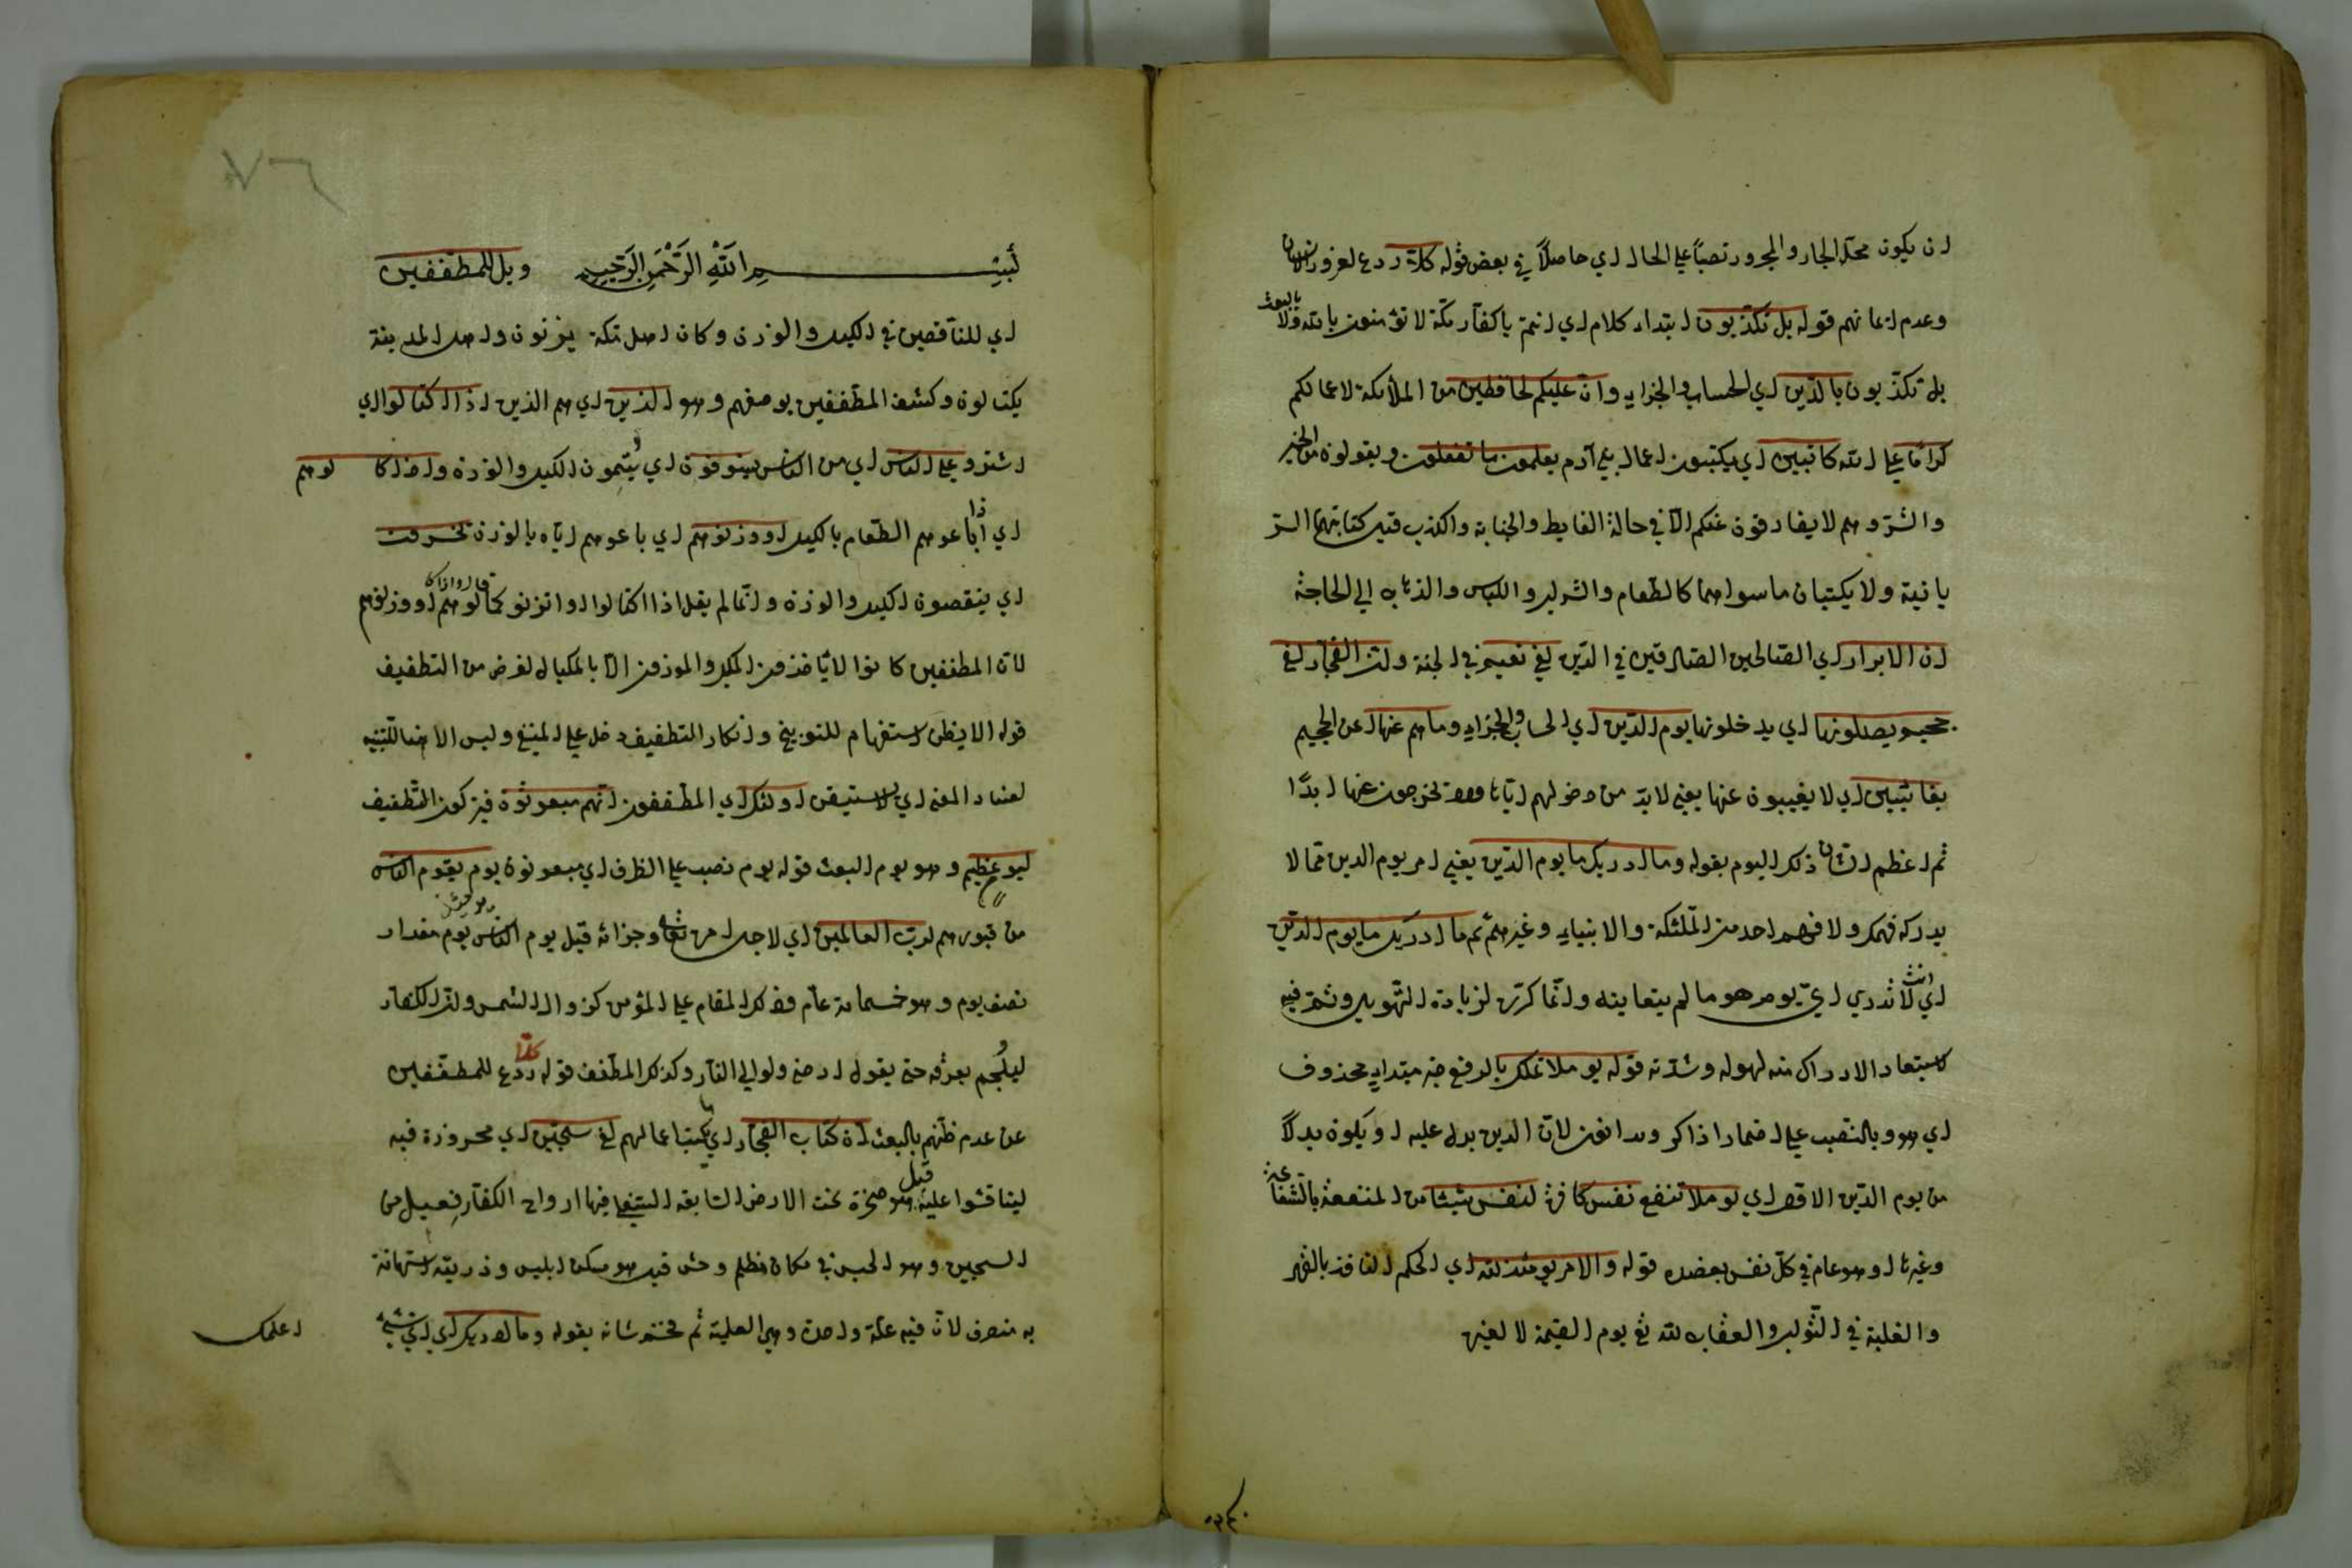 ان يكون محل الجار والمجرور نصبًا على الحال اي حاصلًا في بعض قوله كلّا ردع لغرور الانسان
وعدم ايمانهم قوله بل تكذبون ابتداء كلام اي انتم يا كفار مكة لا تؤمنون بالله ولا بالبعث
بل تكذبون بالدين اي الحساب والجزاء وان عليكم لحافظين من الملائكة لاعمالكم
كرامًا على الله كاتبين اي يكتبون اعمال بني آدم يعلمون ما تفعلون ويقولون من الخير
والشر وهم لا يفارقون عنكم الا في حالة الغايط والجنابة والكذب قيل كتابتهما
ولا يكتبان ما سواهما كالطعام والشراب واللباس والذهاب الى الحاجة
ان الابرار اي الصالحين الصادقين في الدين لفي نعيم في الجنة وان الفجار لفي
جحيم يصلونها اي يدخلونها يوم الدين اي الحساب والجزاء وما هم عنها اي عن الجحيم
بغائبين اي لا يغيبون عنها يعني لا بد من دخولهم اياها ولا تخرجون عنها ابدًا
ثم اعظم الشان ذكر اليوم بقوله وما ادريك ما يوم الدين يعني امر يوم الدين مما لا
يدركه فهمك ولا فهم احد من الملئكة والانبياء وغيرهم ثم ما ادريك ما يوم الدين
اي انت لا تدري اي يوم هو ما لم يتعاينه وانما كرر لزيادة التهويل وشد فيه
استبعاد الادراك منه لهوله وشدته قوله يوم لا تملك بالرفع خبر مبتداء محذوف
اي هو وبالنصب على اضمار اذكر لان الدين يدل عليه او يكون بدلًا
من يوم الدين الاول اي يوم لا تنفع نفس كافرة لنفس شيئا من المنفعة بالشفاعة
وغيرها او هو عام في كل نفس قوله والامر يومئذ لله اي الحكم النافذ بالقهر
والغلبة في الثواب والعقاب لله تع يوم القيمة لا لغيره
بسم الله الرحمن الرحيم ويل للمطففين
اي للناقصين في الكيل والوزن وكان اهل مكة يزنون واهل المدينة
يكتالون وكشف المطففين بوصفهم وهو الذين اي هم الذين اذا اكتالوا اي
اشتروا على الناس اي من الناس يستوفون اي يتمون الكيل والوزن واذا كالوهم
اي اذا باعوهم الطعام بالكيل او وزنوهم اي باعوهم اياه بالوزن يخسرون
اي ينقصون الكيل والوزن وانما لم يقل اذا اكتالوا او اتزنوا كما قال واذا كالوهم او وزنوهم
لان المطففين كانوا لا ياخذون المكيل والموزون الا بالمكيال لغرض من التطفيف
قوله الا يظن استفهام للتوبيخ وانكار التطفيف دخل على المنفي وليس الا هنا للتنبيه
لفساد المعنى اي لا يستيقن اولئك اي المطففون انهم مبعوثون فيتركون التطفيف
ليوم عظيم وهو يوم البعث قوله يوم نصب على الظرف اي مبعوثون يوم يقوم الناس
من قبورهم لرب العالمين اي لاجل امره تعالى وجزائه قيل يوم الناس يومئذ مقدار
نصف يوم وهو خمسمائة عام وذلك المقام على المؤمن كزوال الشمس وان الكفار
ليلجم بعرقه حتى يقول ارحني ولو الى النار وكذلك المطفف قوله كلّا ردع للمطففين
عن عدم ظنهم بالبعث ان كتاب الفجار اي كتاب اعمالهم لفي سجين اي محروزة فيه
ليناقشوا عليه قيل هو صخرة تحت الارض السابعة السفلى فيها ارواح الكفار فعيل من
السجين وهو الحبس في مكان مظلم وحش قيل هو مسكن ابليس وذريته استهانة
به منصرف لان فيه علة واحدة وهي العلمية ثم فخم شانه بقوله وما ادريك اي اي شيء
اعلمك